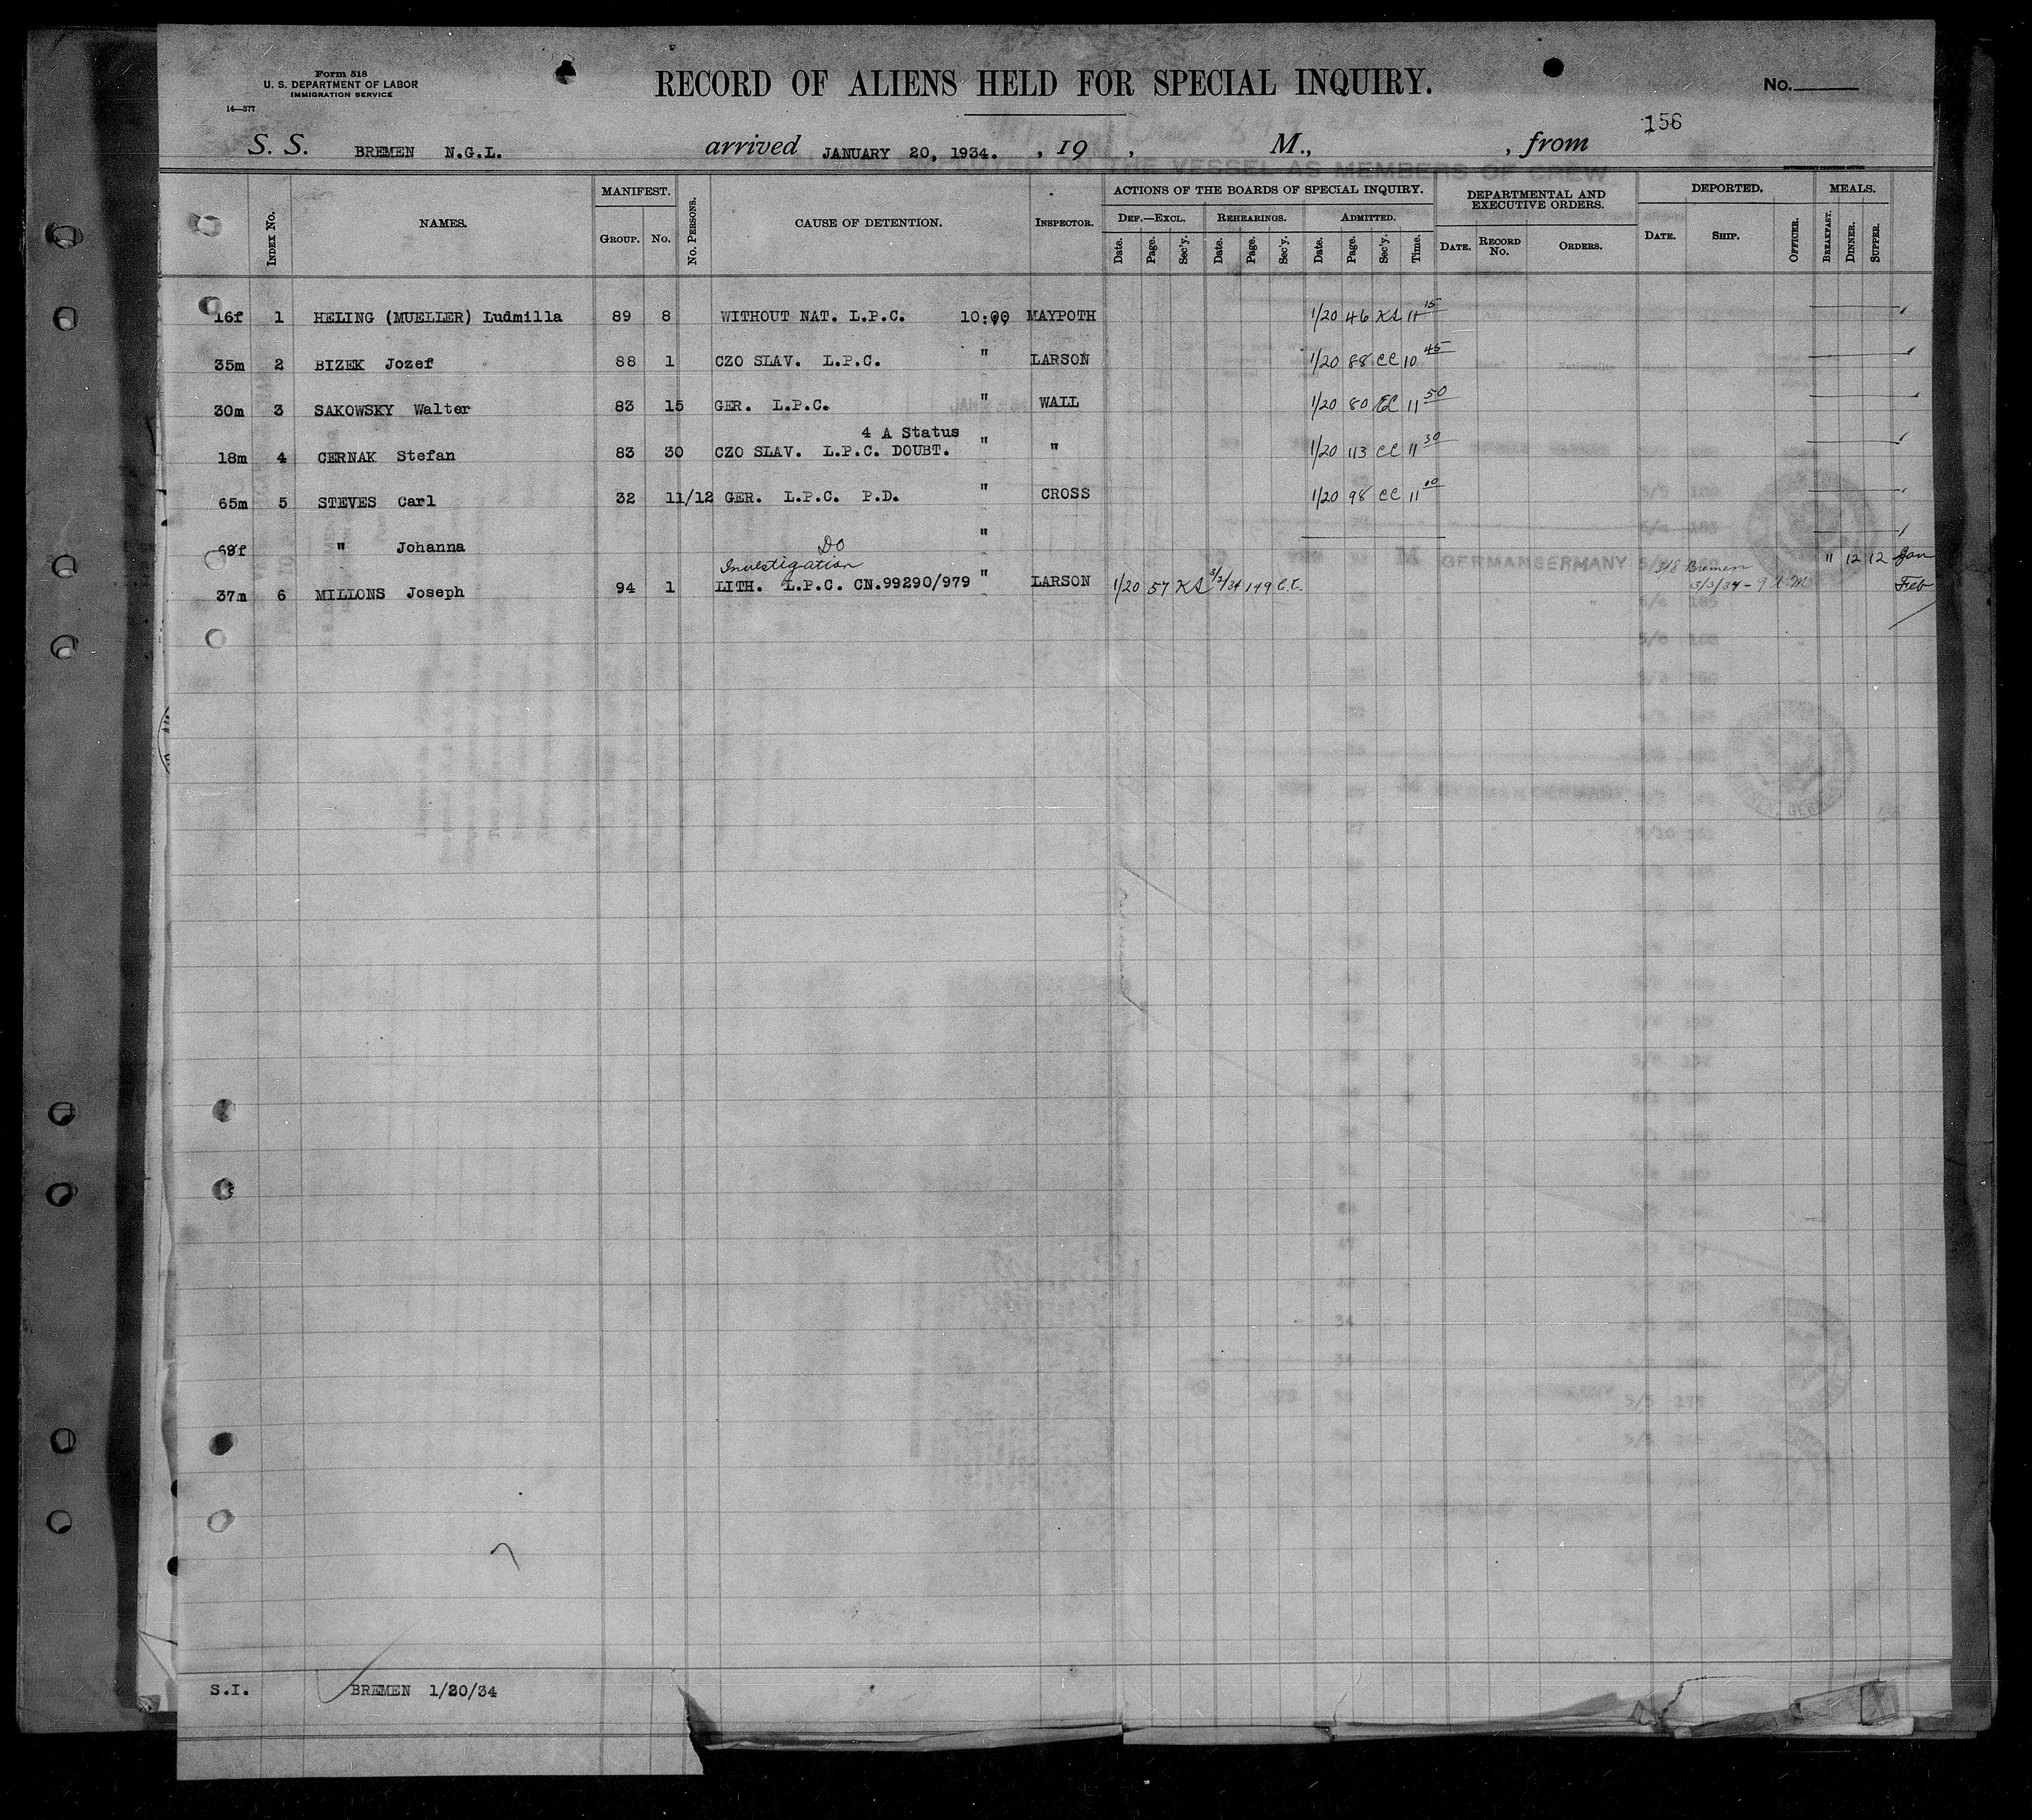 Form 518
U. S. DEPARTMENT OF LABOR
IMMIGRATION SERVICE
14—377
RECORD OF ALIENS HELD FOR SPECIAL INQUIRY.
No.
156
S. S. BREMEN N.G.L. arrived JANUARY 20, 1934. , 19 , M., , from
Index No. NAMES. MANIFEST. Group. No. No. Persons. CAUSE OF DETENTION. Inspector. ACTIONS OF THE BOARDS OF SPECIAL INQUIRY. DEPARTMENTAL AND EXECUTIVE ORDERS. DEPORTED. MEALS.
Def.—Excl. Rehearings. Admitted.
Date. Page. Sec'y. Date. Page. Sec'y. Date. Page. Sec'y. Time. Date. Record No. Orders. Date. Ship. Officer. Breakfast. Dinner. Supper.
16f 1 HELING (MUELLER) Ludmilla 89 8 WITHOUT NAT. L.P.C. 10:00 MAYPOTH 1/20 46 KS 11 15
35m 2 BIZEK Jozef 88 1 CZO SLAV. L.P.C. " LARSON 1/20 88 CC 10 45
30m 3 SAKOWSKY Walter 83 15 GER. L.P.C. " WALL 1/20 80 EC 11 50
4 A Status
18m 4 CERNAK Stefan 83 30 CZO SLAV. L.P.C. DOUBT. " " 1/20 113 CC 11 30
65m 5 STEVES Carl 32 11/12 GER. L.P.C. P.D. " CROSS 1/20 98 CC 11 00
69f " Johanna "
Do
Investigation S/S Bremen 11 12 12 Jan
37m 6 MILLONS Joseph 94 1 LITH. L.P.C. CN.99290/979 " LARSON 1/20 57 KS 3/2/34 149 C.C. 3/3/34 - 9 A.M. Feb
S.I. BREMEN 1/20/34